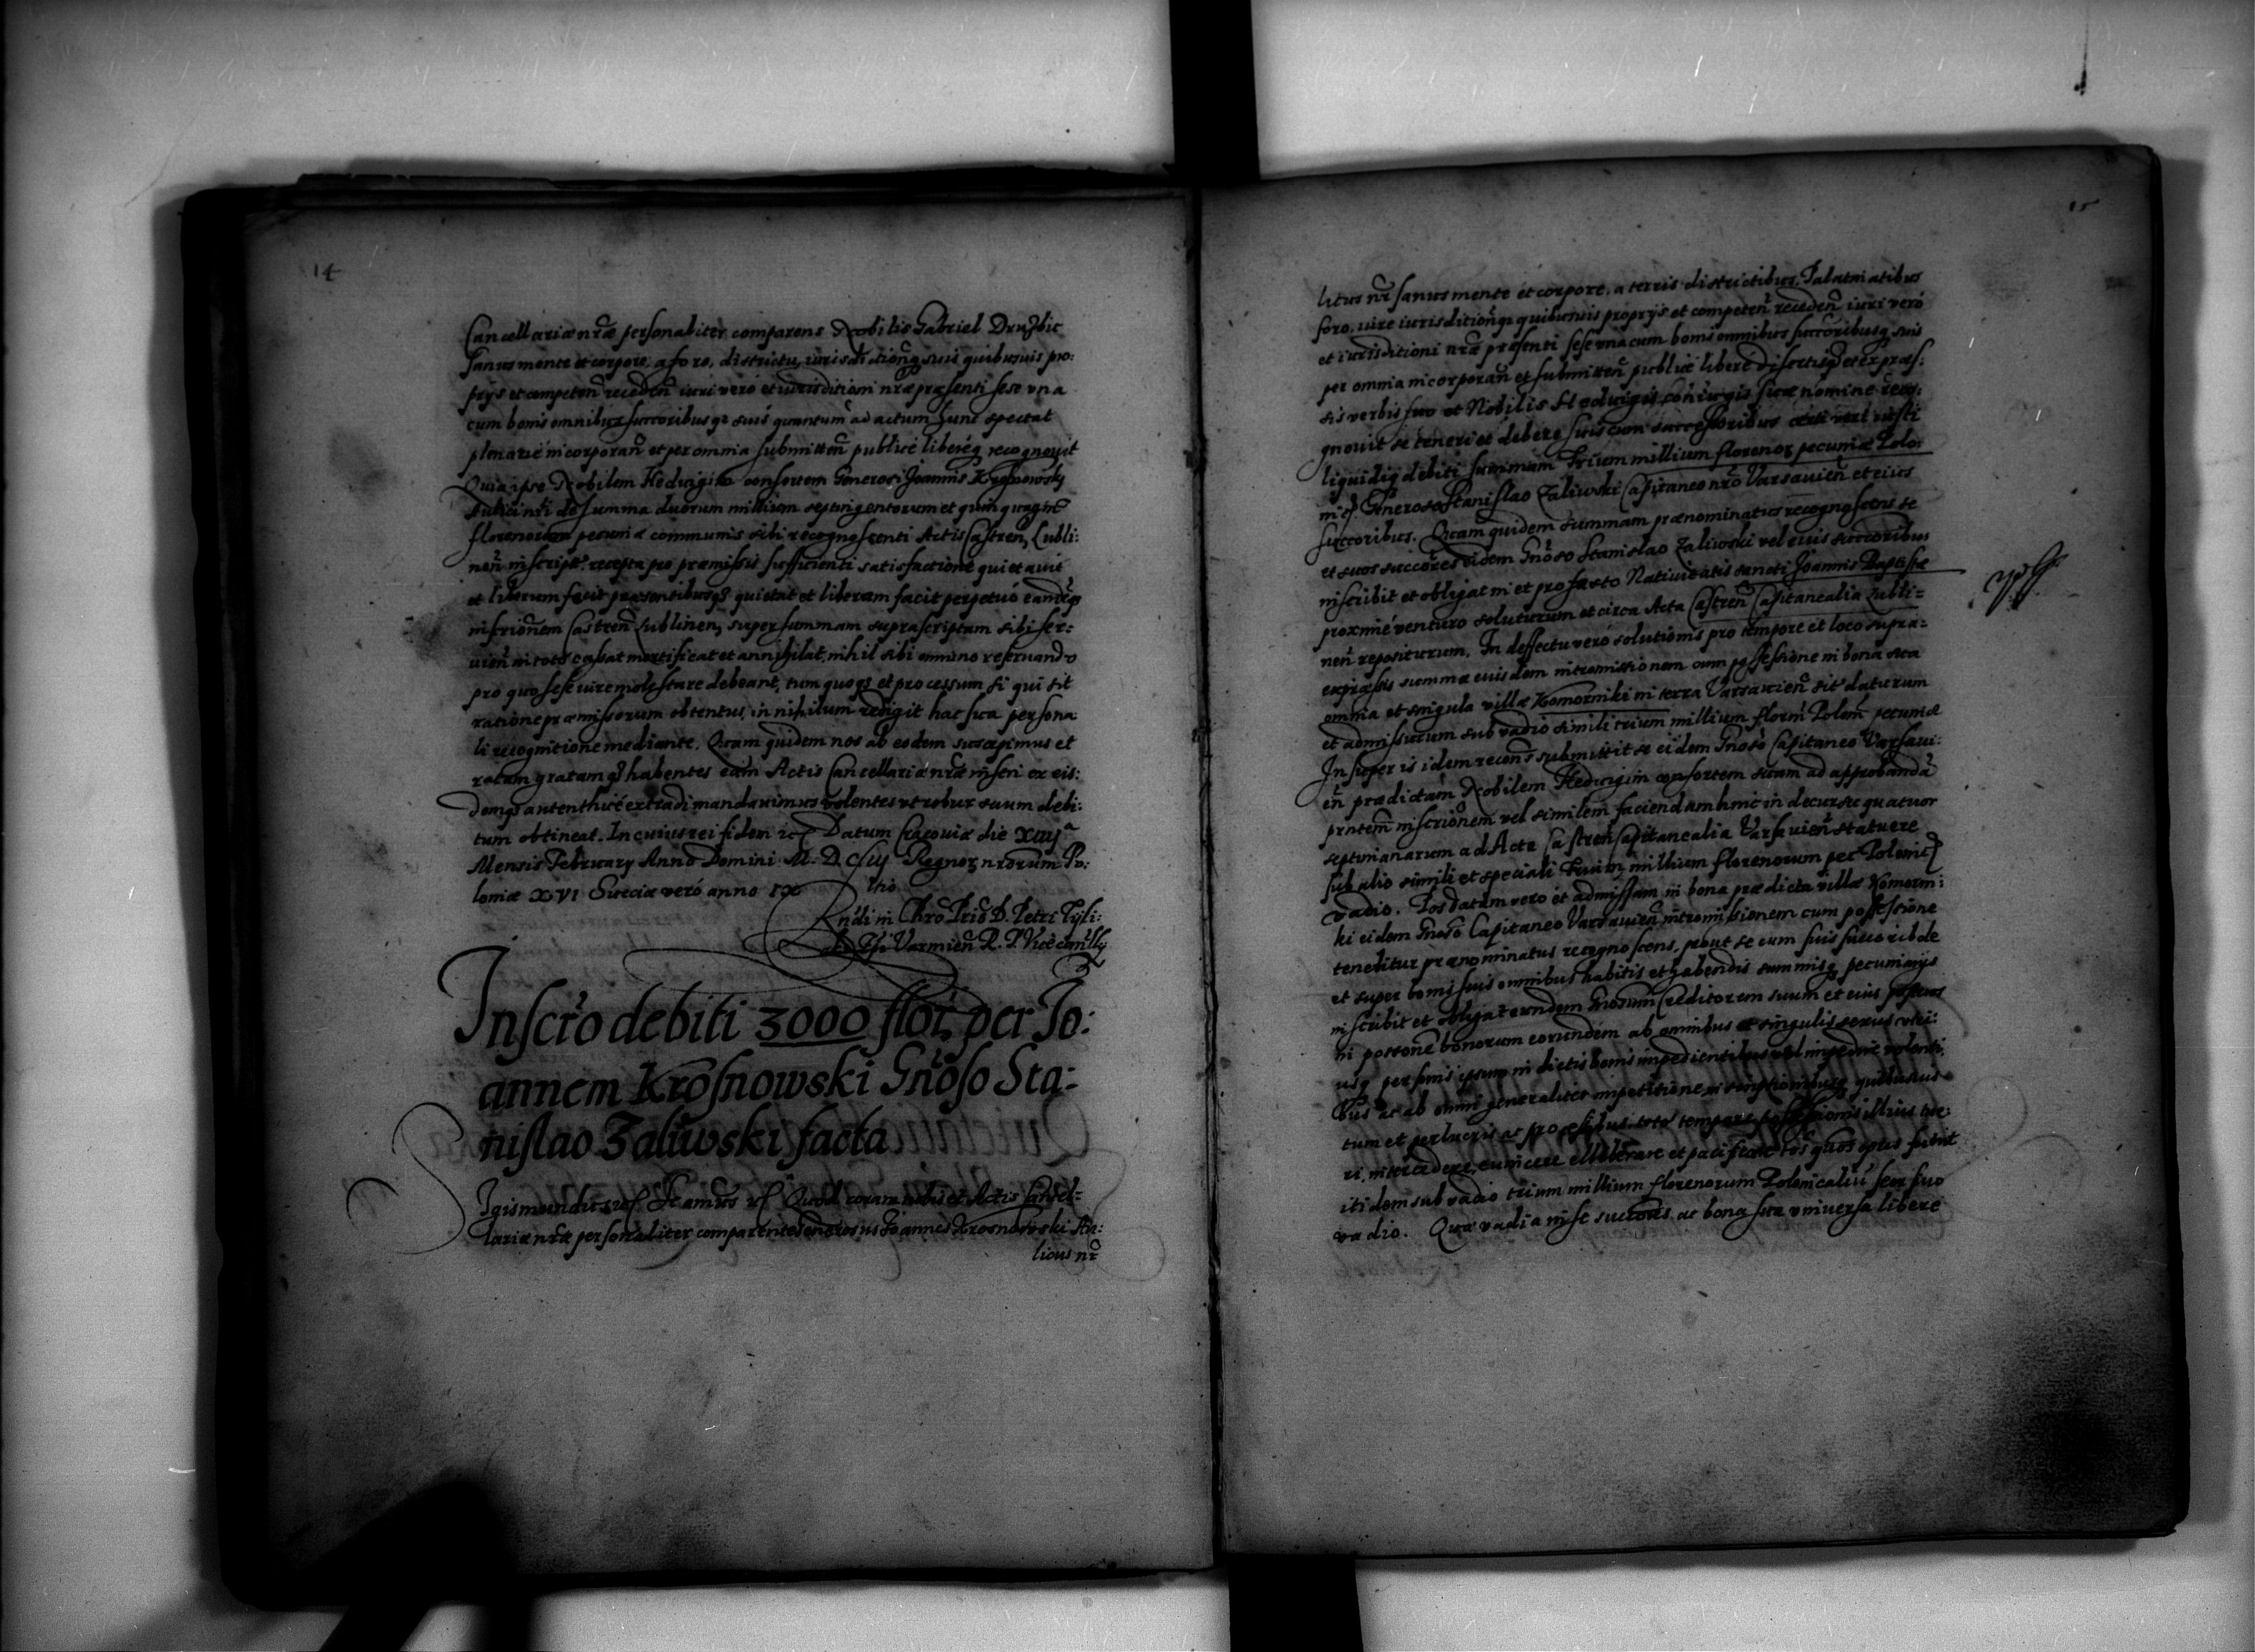 14
Cancellariæ nr̃æ personaliter comparens Nobilis Gabriel Druzbic
sanus mente et corpore, a foro, districtu, iurisdictioñq suis quibusuis pro:
prys et competeñ recedeñ iuri vero et iurisdictioni nr̃æ præsenti sese vna
cum bonis omnibus succoribusq suis quantum ad actum hunc spectat
plenarie incorporañ et per omnia submitteñ publice libereq recognouit
Quia ipse Nobilem Hedwigim consortem Generosi Joannis Krosnowsky
Aulici nri de summa duorum millium septingentorum et quinquaginta
florenorum pecuniæ communis sibi recognoscenti Actis Castreñ Lubli:
neñ inscript. recepta pro præmissis sufficienti satisfactione quietauit
et liberum fecit præsentibusq quietat et liberam facit perpetuo eandq
inscrionem Castreñ Lublinen, super summam suprascriptam sibi ser:
uieñ in toto cassat mortificat et annihilat, nihil sibi omnino reseruando
pro quo sese iure molestare debeant, tum quoq et processum si qui sit
ratione præmissorum obtentus, in nihilum redigit hac sua persona
li recognitione mediante. Quam quidem nos ab eodem suscepimus et
ratam gratamq habentes eam Actis Cancellariæ nr̃æ inseri ex eis:
demq autenthicè extradi mandauimus volentes vt robur suum debi:
tum obtineat. In cuius rei fidem etc Datum Cracouiæ die XIIIJa
Mensis February Anno Domini M. D. CIIIJ Regnor nrorum Po:
loniæ XVI Sueciæ verò anno IX
Rndi in Chrõ Pris D. Petri Tyli:
Epi Varmieñ R. P. Vicècancily
Inscrõ debiti 3000 flor per Jo:
annem Krosnowski Gnoso Sta:
nislao Zaliwski facta
Igismundus etc Significamus etc Quod coram nobis et Actis Cancel:
lariæ nr̃æ personaliter comparens Generosus Joannes Krosnowski Au:
licus nr̃
15
litus nr̃ sanus mente et corpore, a terris districtibus, Palatinatibus
foro, iure iurisditioñq quibusuis proprys et competeñ recedeñ iuri verò
et iurisditioni nr̃æ præsenti sese vna cum bonis omnibus succoribusq suis
per omnia incorporañ et submitteñ publicè liberè disertisq et expres:
sis verbis suo et Nobilis Hedwigis coniugis suæ nomine reco:
gnouit se teneri et debere suis cum successoribus veri iusti
liquidiq debiti summam Trium millium florenor pecuniæ Polo:
nic Generoso Stanislao Zaliwski Capitaneo nrõ Varsauieñ et eius
succoribus. Quam quidem summam prænominatus recognoscens se
et suos succores eidem Gnoso Stanislao Zaliwski vel eius succoribus
inscribit et obligat in et pro festo Natiuitatis sancti Joannis Baptistæ
proximè venturo soluturum et circa Acta Castreñ Capitanealia Lubli:
neñ repositurum. In deffectu verò solutionis pro tempore et loco supra:
expressis summæ eiusdem intromissionem cum possessione in bona sua
omnia et singula villæ Komorniki in terra Varsauieñ sit daturum
et admissurum sub vadio simili trium millium floreñ Poloñ pecuniæ
Insuper is idem recons submittit se eidem Gnoso Capitaneo Varsaui:
eñ prædictam Nobilem Hedwigim consortem suam ad approbandã
præntem inscrionem vel similem faciendam hinc in decursu quatuor
septimanarum ad Acta Castreñ Capitanealia Varsauieñ statuere
sub alio simili et speciali trium millium florenorum pec Polonic
vadio. Post datam vero et admissam in bona prædicta villæ Komorni:
ki eidem Gnoso Capitaneo Varsauieñ intromissionem cum possessione
tenebitur prænominatus recognoscens, prout se cum suis succorib de
et super bonis suis omnibus habitis et habendis summisq pecuniarijs
inscribit et obligat eundem Gnosum Creditorem suum et eius posteros
in possone bonorum eorundem ab omnibus et singulis sexus vtri:
usq personis ipsum in dictis bonis impedientibus vel impedire volenti:
bus ac ab omni generaliter impetitione quibusuis
tum et perlucris ac processibus toto tempore possessionis illius tue:
ri, intercedere, euincere elliberare et pacificare tos quos opus fuerit
itidem sub vadio trium millium florenorum Polonicaliũ seu suo
vadio. Quæ vadia in se succores ac bona sua vniuersa libere